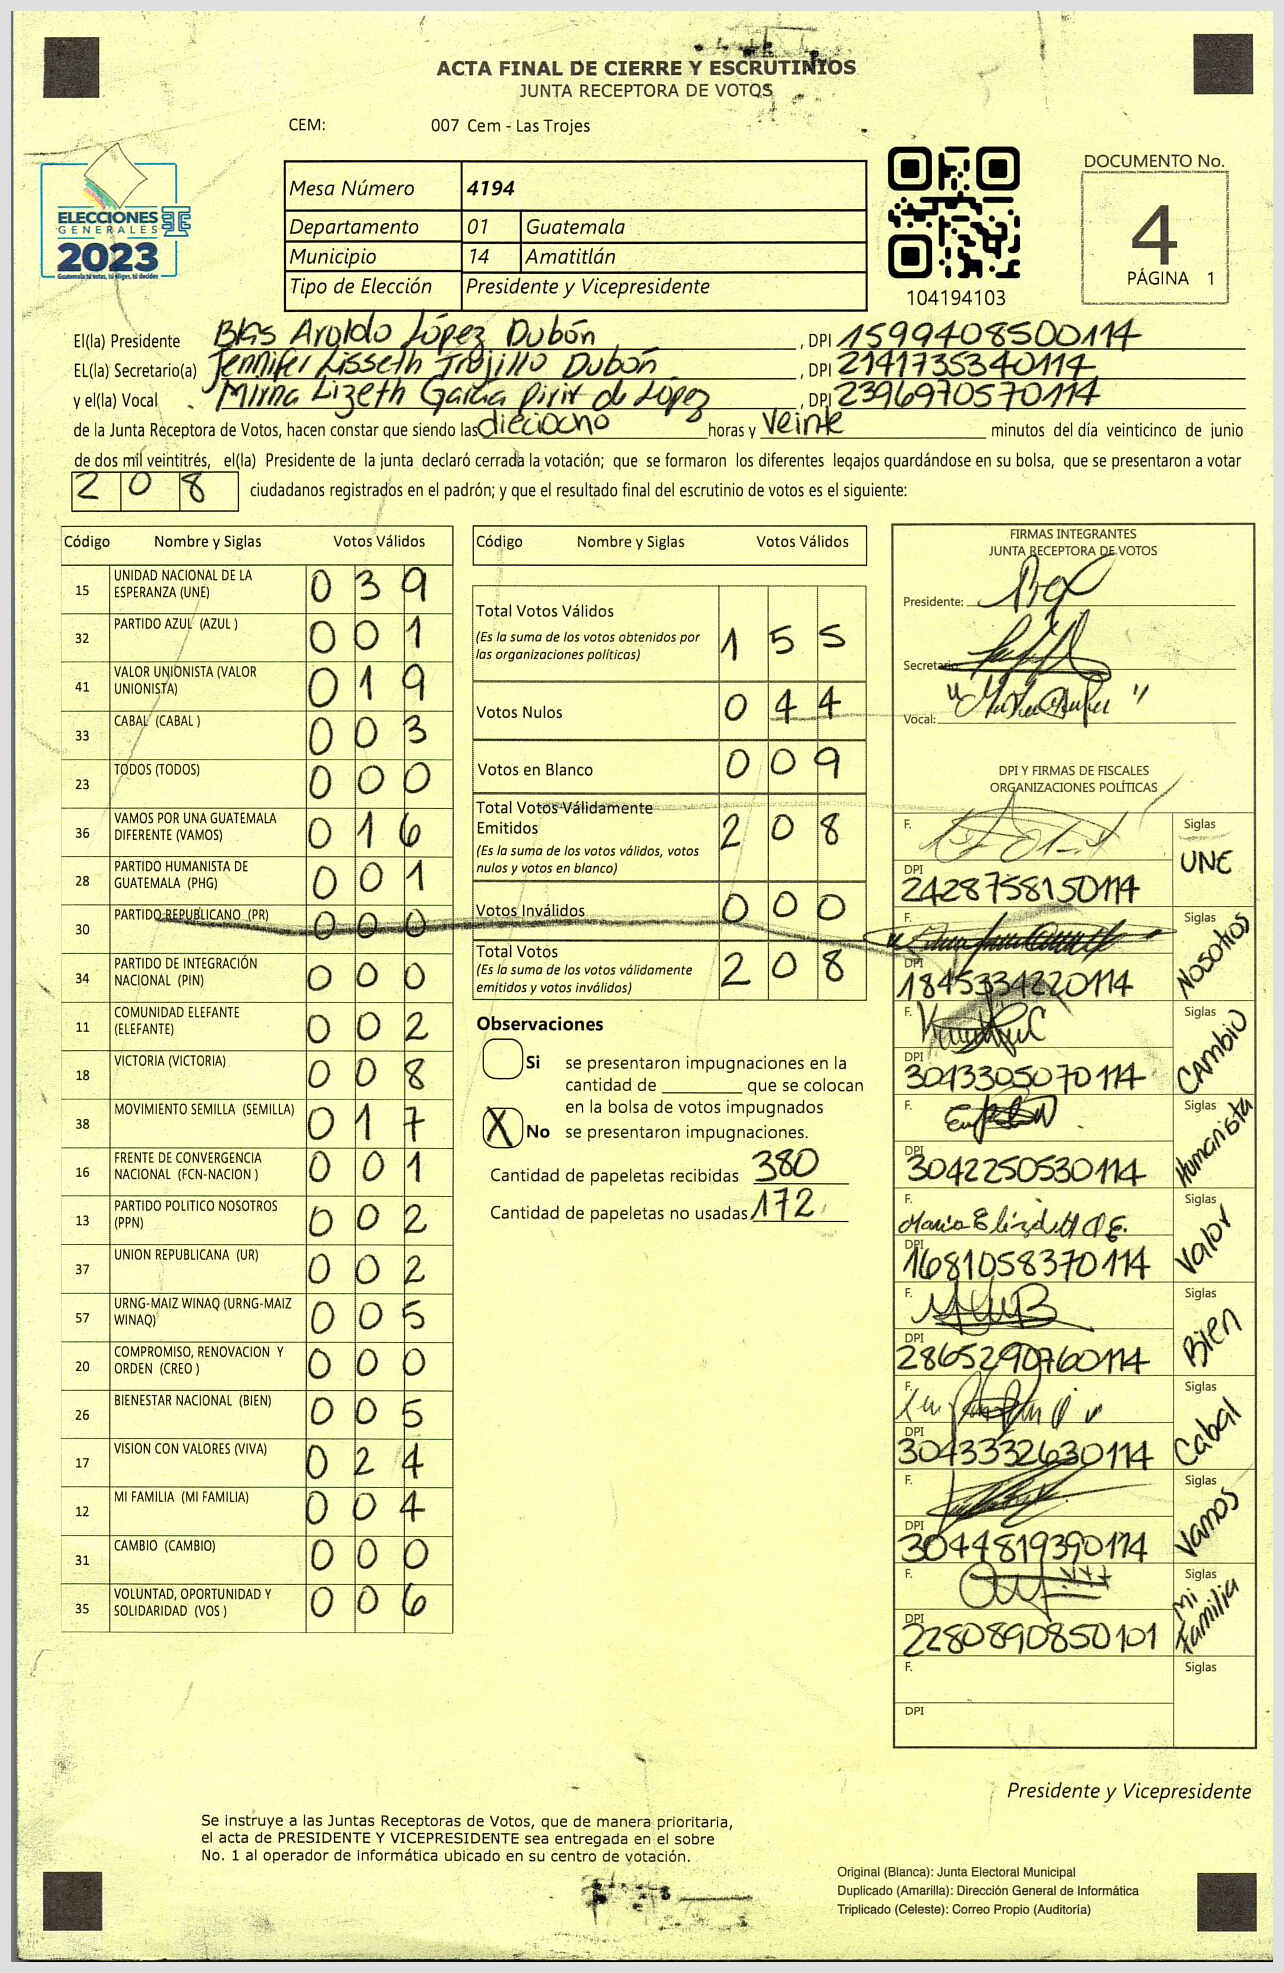 ACTA FINAL DE CIERRE Y ESCRUTINIOS
JUNTA RECEPTORA DE VOTOS
CEM: 007 Cem - Las Trojes
ELECCIONES
GENERALES
2023
Guatemala tú votas, tú eliges, tú decides
Mesa Número 4194
Departamento 01 Guatemala
Municipio 14 Amatitlán
Tipo de Elección Presidente y Vicepresidente
104194103
DOCUMENTO No.
4
PÁGINA 1
El(la) Presidente Blas Aroldo López Dubón, DPI 1599408500114
EL(la) Secretario(a) Jennifer Lisseth Trujillo Dubón, DPI 2141735340114
y el(la) Vocal Mirna Lizeth García Pirir de López, DPI 2396970570114
de la Junta Receptora de Votos, hacen constar que siendo las dieciocho horas y veinte minutos del día veinticinco de junio
de dos mil veintitrés, el(la) Presidente de la junta declaró cerrada la votación; que se formaron los diferentes legajos guardándose en su bolsa, que se presentaron a votar
208 ciudadanos registrados en el padrón; y que el resultado final del escrutinio de votos es el siguiente:
Código Nombre y Siglas Votos Válidos
15 UNIDAD NACIONAL DE LA ESPERANZA (UNE) 039
32 PARTIDO AZUL (AZUL ) 001
41 VALOR UNIONISTA (VALOR UNIONISTA) 019
33 CABAL (CABAL ) 003
23 TODOS (TODOS) 000
36 VAMOS POR UNA GUATEMALA DIFERENTE (VAMOS) 016
28 PARTIDO HUMANISTA DE GUATEMALA (PHG) 001
30 PARTIDO REPUBLICANO (PR) 000
34 PARTIDO DE INTEGRACIÓN NACIONAL (PIN) 000
11 COMUNIDAD ELEFANTE (ELEFANTE) 002
18 VICTORIA (VICTORIA) 008
38 MOVIMIENTO SEMILLA (SEMILLA) 017
16 FRENTE DE CONVERGENCIA NACIONAL (FCN-NACION ) 001
13 PARTIDO POLITICO NOSOTROS (PPN) 002
37 UNION REPUBLICANA (UR) 002
57 URNG-MAIZ WINAQ (URNG-MAIZ WINAQ) 005
20 COMPROMISO, RENOVACION Y ORDEN (CREO ) 000
26 BIENESTAR NACIONAL (BIEN) 005
17 VISION CON VALORES (VIVA) 024
12 MI FAMILIA (MI FAMILIA) 004
31 CAMBIO (CAMBIO) 000
35 VOLUNTAD, OPORTUNIDAD Y SOLIDARIDAD (VOS ) 006
Código Nombre y Siglas Votos Válidos
Total Votos Válidos 155
(Es la suma de los votos obtenidos por
las organizaciones políticas)
Votos Nulos 044
Votos en Blanco 009
Total Votos Válidamente
Emitidos 208
(Es la suma de los votos válidos, votos
nulos y votos en blanco)
Votos Inválidos 000
Total Votos 208
(Es la suma de los votos válidamente
emitidos y votos inválidos)
Observaciones
Si se presentaron impugnaciones en la
cantidad de ________ que se colocan
en la bolsa de votos impugnados
X No se presentaron impugnaciones.
Cantidad de papeletas recibidas 380
Cantidad de papeletas no usadas 172
FIRMAS INTEGRANTES
JUNTA RECEPTORA DE VOTOS
Presidente:
Secretario:
Vocal:
DPI Y FIRMAS DE FISCALES
ORGANIZACIONES POLÍTICAS
F. Siglas UNE
DPI 2428758150114
F. Siglas Nosotros
DPI 1845334220114
F. Siglas Cambio
DPI 3013305070114
F. Siglas Humanista
DPI 3042250530114
F. Siglas Valor
DPI 1681058370114
F. Siglas Bien
DPI 2865290760114
F. Siglas Cabal
DPI 3043332630114
F. Siglas Vamos
DPI 3044819390114
F. Siglas Mi Familia
DPI 2280890850101
F. Siglas
DPI
Presidente y Vicepresidente
Se instruye a las Juntas Receptoras de Votos, que de manera prioritaria,
el acta de PRESIDENTE Y VICEPRESIDENTE sea entregada en el sobre
No. 1 al operador de informática ubicado en su centro de votación.
Original (Blanca): Junta Electoral Municipal
Duplicado (Amarilla): Dirección General de Informática
Triplicado (Celeste): Correo Propio (Auditoría)